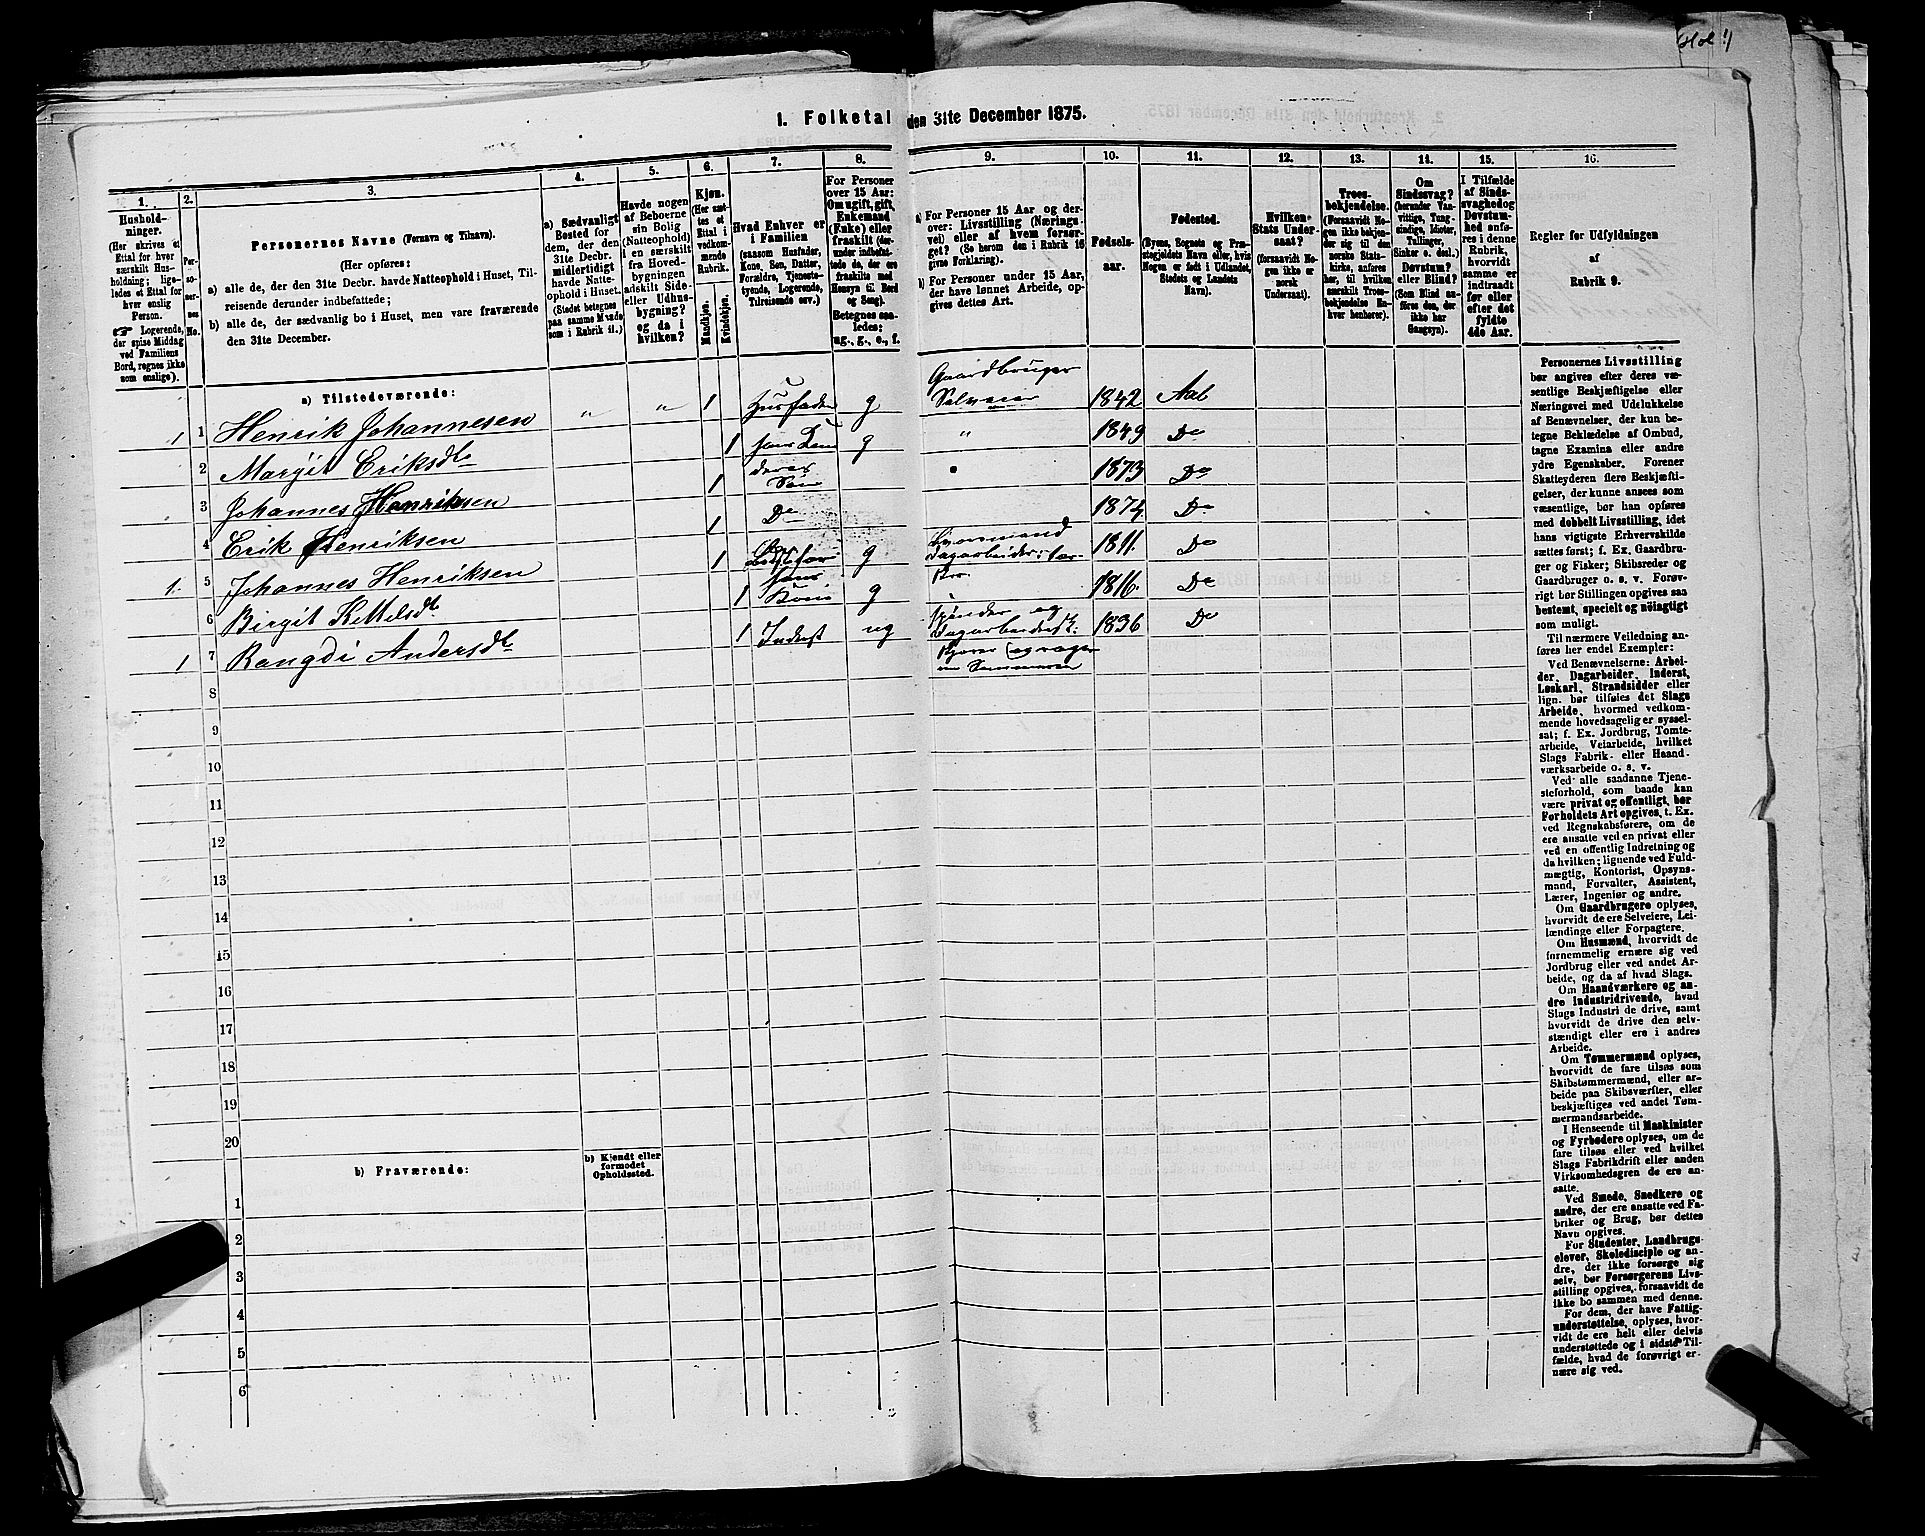 1. Folketal den 31te December 1875.
1.
Hushold-
ninger.
(Her skrives et
Ettal for hver
særskilt Hus-
holdning; lige-
ledes et Ettal for
hver enslig
Person.
☞ Logerende,
der spise Middag
ved Familiens
Bord, regnes ikke
som enslige).
2.
Per-
so-
ner-
nes
No.
3.
Personernes Navne (Fornavn og Tilnavn).
(Her opføres:
a) alle de, der den 31te Decbr. havde Natteophold i Huset, Til-
reisende derunder indbefattede;
b) alle de, der sædvanlig bo i Huset, men vare fraværende
den 31te December.
4.
a) Sædvanligt
Bosted for
dem, der den
31te Decbr.
midlertidigt
havde Natte-
ophold i Huset.
(Stedet betegnes
paa samme Maade
som i Rubrik 11.)
5.
Havde nogen
af Beboerne
sin Bolig
(Natteophold)
i en særskilt
fra Hoved-
bygningen
adskilt Side-
eller Udhus-
bygning?
og da i
hvilken?
6.
Kjøn.
(Her sæt-
tes et
Ettal i
vedkom-
mende
Rubrik.
Mandkjøn.
Kvindekjøn.
7.
Hvad Enhver er
i Familien
(saasom Husfader,
Kone, Søn, Datter,
Forældre, Tjeneste-
tyende, Logerende,
Tilreisende osv.)
8.
For Personer
over 15 Aar:
Om ugift, gift,
Enkemand
(Enke) eller
fraskilt (der-
under indbefat-
tede de, der ere
fraskilte med
Hensyn til Bord
og Seng).
Betegnes saa-
ledes:
ug., g., e., f.
9.
a) For Personer 15 Aar og der-
over: Livsstilling (Nærings-
vei) eller af hvem forsør-
get? (Se herom den i Rubrik 16
givne Forklaring).
b) For Personer under 15 Aar,
der have lønnet Arbeide, op-
gives dettes Art.
10.
Fødsels-
aar.
11.
Fødested.
(Byens, Sognets og Præ-
stegjeldets Navn eller, hvis
Nogen er født i Udlandet,
Stedets og Landets
Navn).
12.
Hvilken
Stats Under-
saat?
(forsaavidt No-
gen ikke er
norsk
Undersaat).
13.
Troes-
bekjendelse.
(Forsaavidt No-
gen ikke bekjen-
der sig til den
norske Stats-
kirke, anføres
her, til hvilken
særskilt Troes-
bekjendelse En-
hver henhører).
14.
Om
Sindssvag?
(herunder Van-
vittige, Tung-
sindige, Idioter,
Tullinger,
Sinker o. desl.)
Døvstum?
eller Blind?
(Som Blind an-
føres den, der
ikke har
Gangsyn).
15.
I Tilfælde
af Sinds-
svaghed og
Døvstum-
hed anfø-
res i denne
Rubrik,
hvorvidt
samme er
indtraadt
før eller
efter det
fyldte
4de Aar.
16.
Regler for Udfyldningen
af
Rubrik 9.
a) Tilstedeværende:
1 1 Henrik Johannesen " " 1 Husfader g Gaardbruger Selveier 1842 Aal
2 Margit Eriksdt. 1 hans g " 1849 Do
3 Johannes Henriksen 1 deres Søn 1873 Do
4 Erik Henriksen 1 Do 1874 Do
1. 5 Johannes Henriksen 1 g 1811. Do
6 Birgit Kettelsdt. 1 hans Kone g 1816. Do
1 7 Rangdi Andersdt. 1 Inderst ug 1836 Do
8
9
10
11
12
13
14
15
16
17
18
19
20
b) Fraværende:
b) Kjendt eller
formodet
Opholdssted.
1
2
3
4
5
6
Personernes Livsstilling
bør angives efter deres væ-
sentlige Beskjæftigelse eller
Næringsvei med Udelukkelse
af Benævnelser, der kun be-
tegne Beklædelse af Ombud,
tagne Examina eller andre
ydre Egenskaber. Forener
Skatteyderen flere Beskjæfti-
gelser, der kunne ansees som
væsentlige, bør han opføres
med dobbelt Livsstilling, idet
hans vigtigste Erhvervskilde
sættes først; f. Ex. Gaardbru-
ger og Fisker; Skibsreder og
Gaardbruger o. s. v. Forøv-
rigt bør Stillingen opgives saa
bestemt, specielt og nøiagtigt
som muligt.
Til nærmere Veiledning an-
føres her endel Exempler:
Ved Benævnelserne: Arbei-
der, Dagarbeider, Inderst,
Løskarl, Strandsidder eller
lign. bør tilføies det Slags
Arbeide, hvormed vedkom-
mende hovedsagelig er syssel-
sat; f. Ex. Jordbrug, Tomte-
arbeide, Veiarbeide, hvilket
Slags Fabrik- eller Haand-
værksarbeide o. s. v.
Ved alle saadanne Tjene-
steforhold, som baade kan
være privat og offentligt, bør
Forholdets Art opgives, t. Ex.
ved Regnskabsførere, om de
ere ansatte ved en privat eller
ved en offentlig Indretning og
da hvilken; lignende ved Fuld-
mægtig, Kontorist, Opsyns-
mand, Forvalter, Assistent,
Lærer, Ingeniør og andre.
Om Gaardbrugere oplyses,
hvorvidt de ere Selveiere, Lei-
lændinge eller Forpagtere.
Om Husmænd, hvorvidt de
fornemmelig ernære sig ved
Jordbrug eller ved andet Ar-
beide, og da af hvad Slags.
Om Haandværkere og an-
dre Industridrivende, hvad
Slags Industri de drive, samt
hvorvidt de drive den selv-
stændigt eller ere i andres
Arbeide.
Om Tømmermænd oplyses,
hvorvidt de fare tilsøs som
Skibstømmermænd, eller ar-
beide paa Skibsværfter, eller
beskjæftiges ved andet Tøm-
mermandsarbeide.
I Henseende til Maskinister
og Fyrbødere oplyses, om de
fare tilsøs eller ved hvilket
Slags Fabrikdrift eller anden
Virksomhedsgren de ere an-
satte.
Ved Smede, Snedkere og
andre, der ere ansatte ved Fa-
briker og Brug, bør dettes
Navn opgives.
For Studenter, Landbrugs-
elever, Skoledisciple og an-
dre, der ikke forsørge sig
selv, bør Forsørgerens Livs-
stilling opgives, forsaavidt de
ikke bo sammen med denne.
For dem, der have Fattig-
understøttelse, oplyses, hvor-
vidt de ere helt eller delvis
understøttede og i sidste Til-
fælde, hvad de forøvrigt er-
nære sig ved.